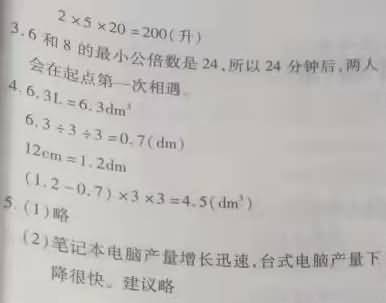 2×5×20=200(升)
3. 6 和 8 的最小公倍数是 24,所以 24 分钟后,两人
会在起点第一次相遇。
4. 6.3L=6.3dm³
6.3÷3÷3=0.7(dm)
12cm=1.2dm
(1.2-0.7)×3×3=4.5(dm³)
5. (1)略
(2)笔记本电脑产量增长迅速,台式电脑产量下
降很快。建议略